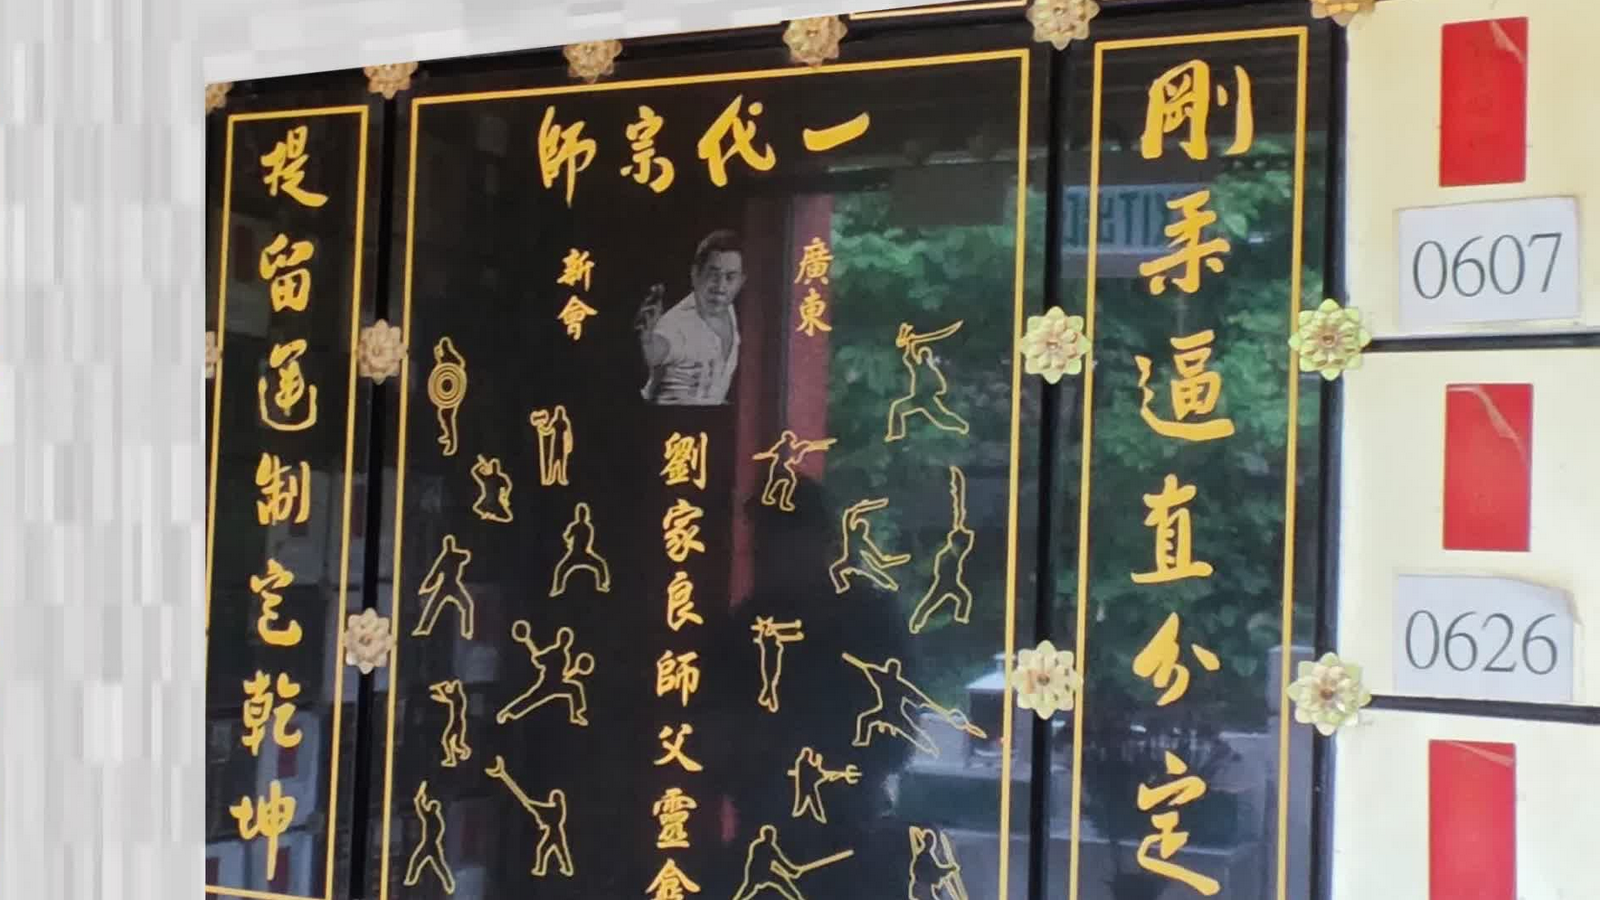 剛柔逼直分定
一代宗師
廣東
新會
劉家良師父靈龕
提留運制定乾坤
0607
0626